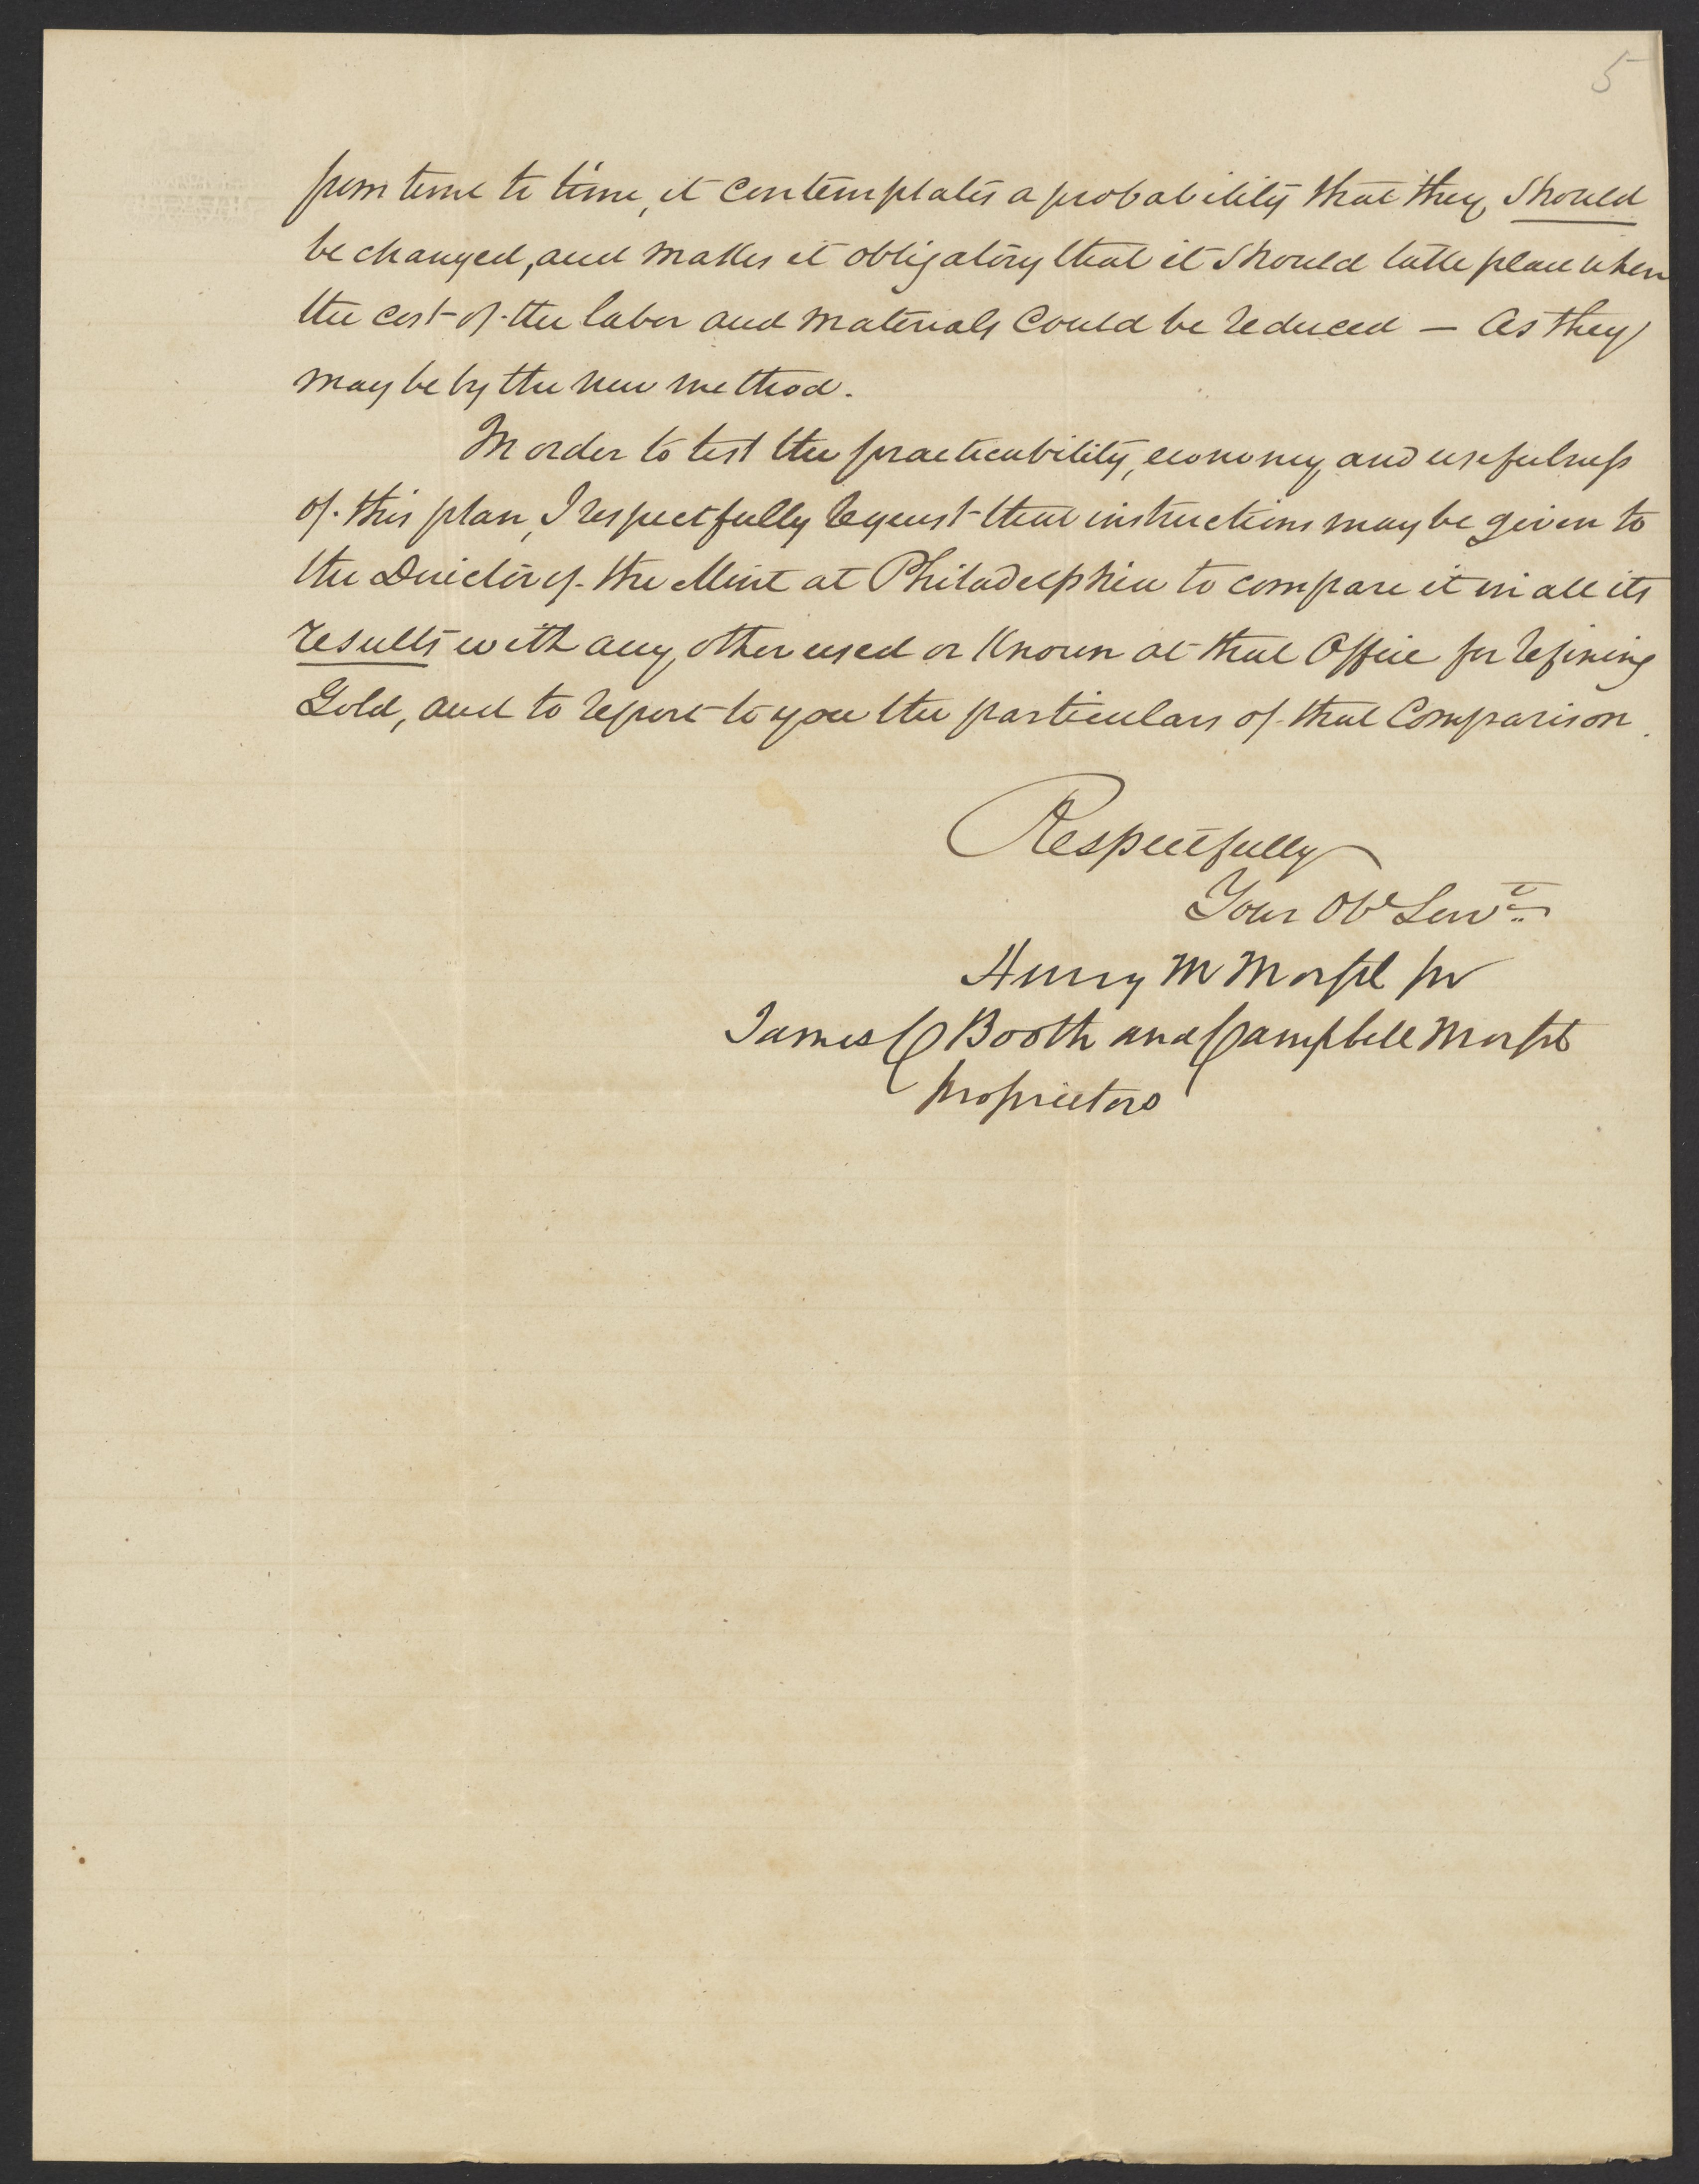 5
from time to time, it contemplates a probability that they should
be changed, and makes it obligatory that it should take place when
the cost of the labor and materials could be reduced — as they
may be by the new method.
In order to test the practicability, economy and usefulness
of this plan, I respectfully request that instructions may be given to
the Director of the Mint at Philadelphia to compare it in all its
results with any other used or known at that Office for refining
Gold, and to report to you the particulars of that Comparison.
Respectfully
Your Obt Servt
Henry M Morfit for
James C Booth and Campbell Morfit
proprietors